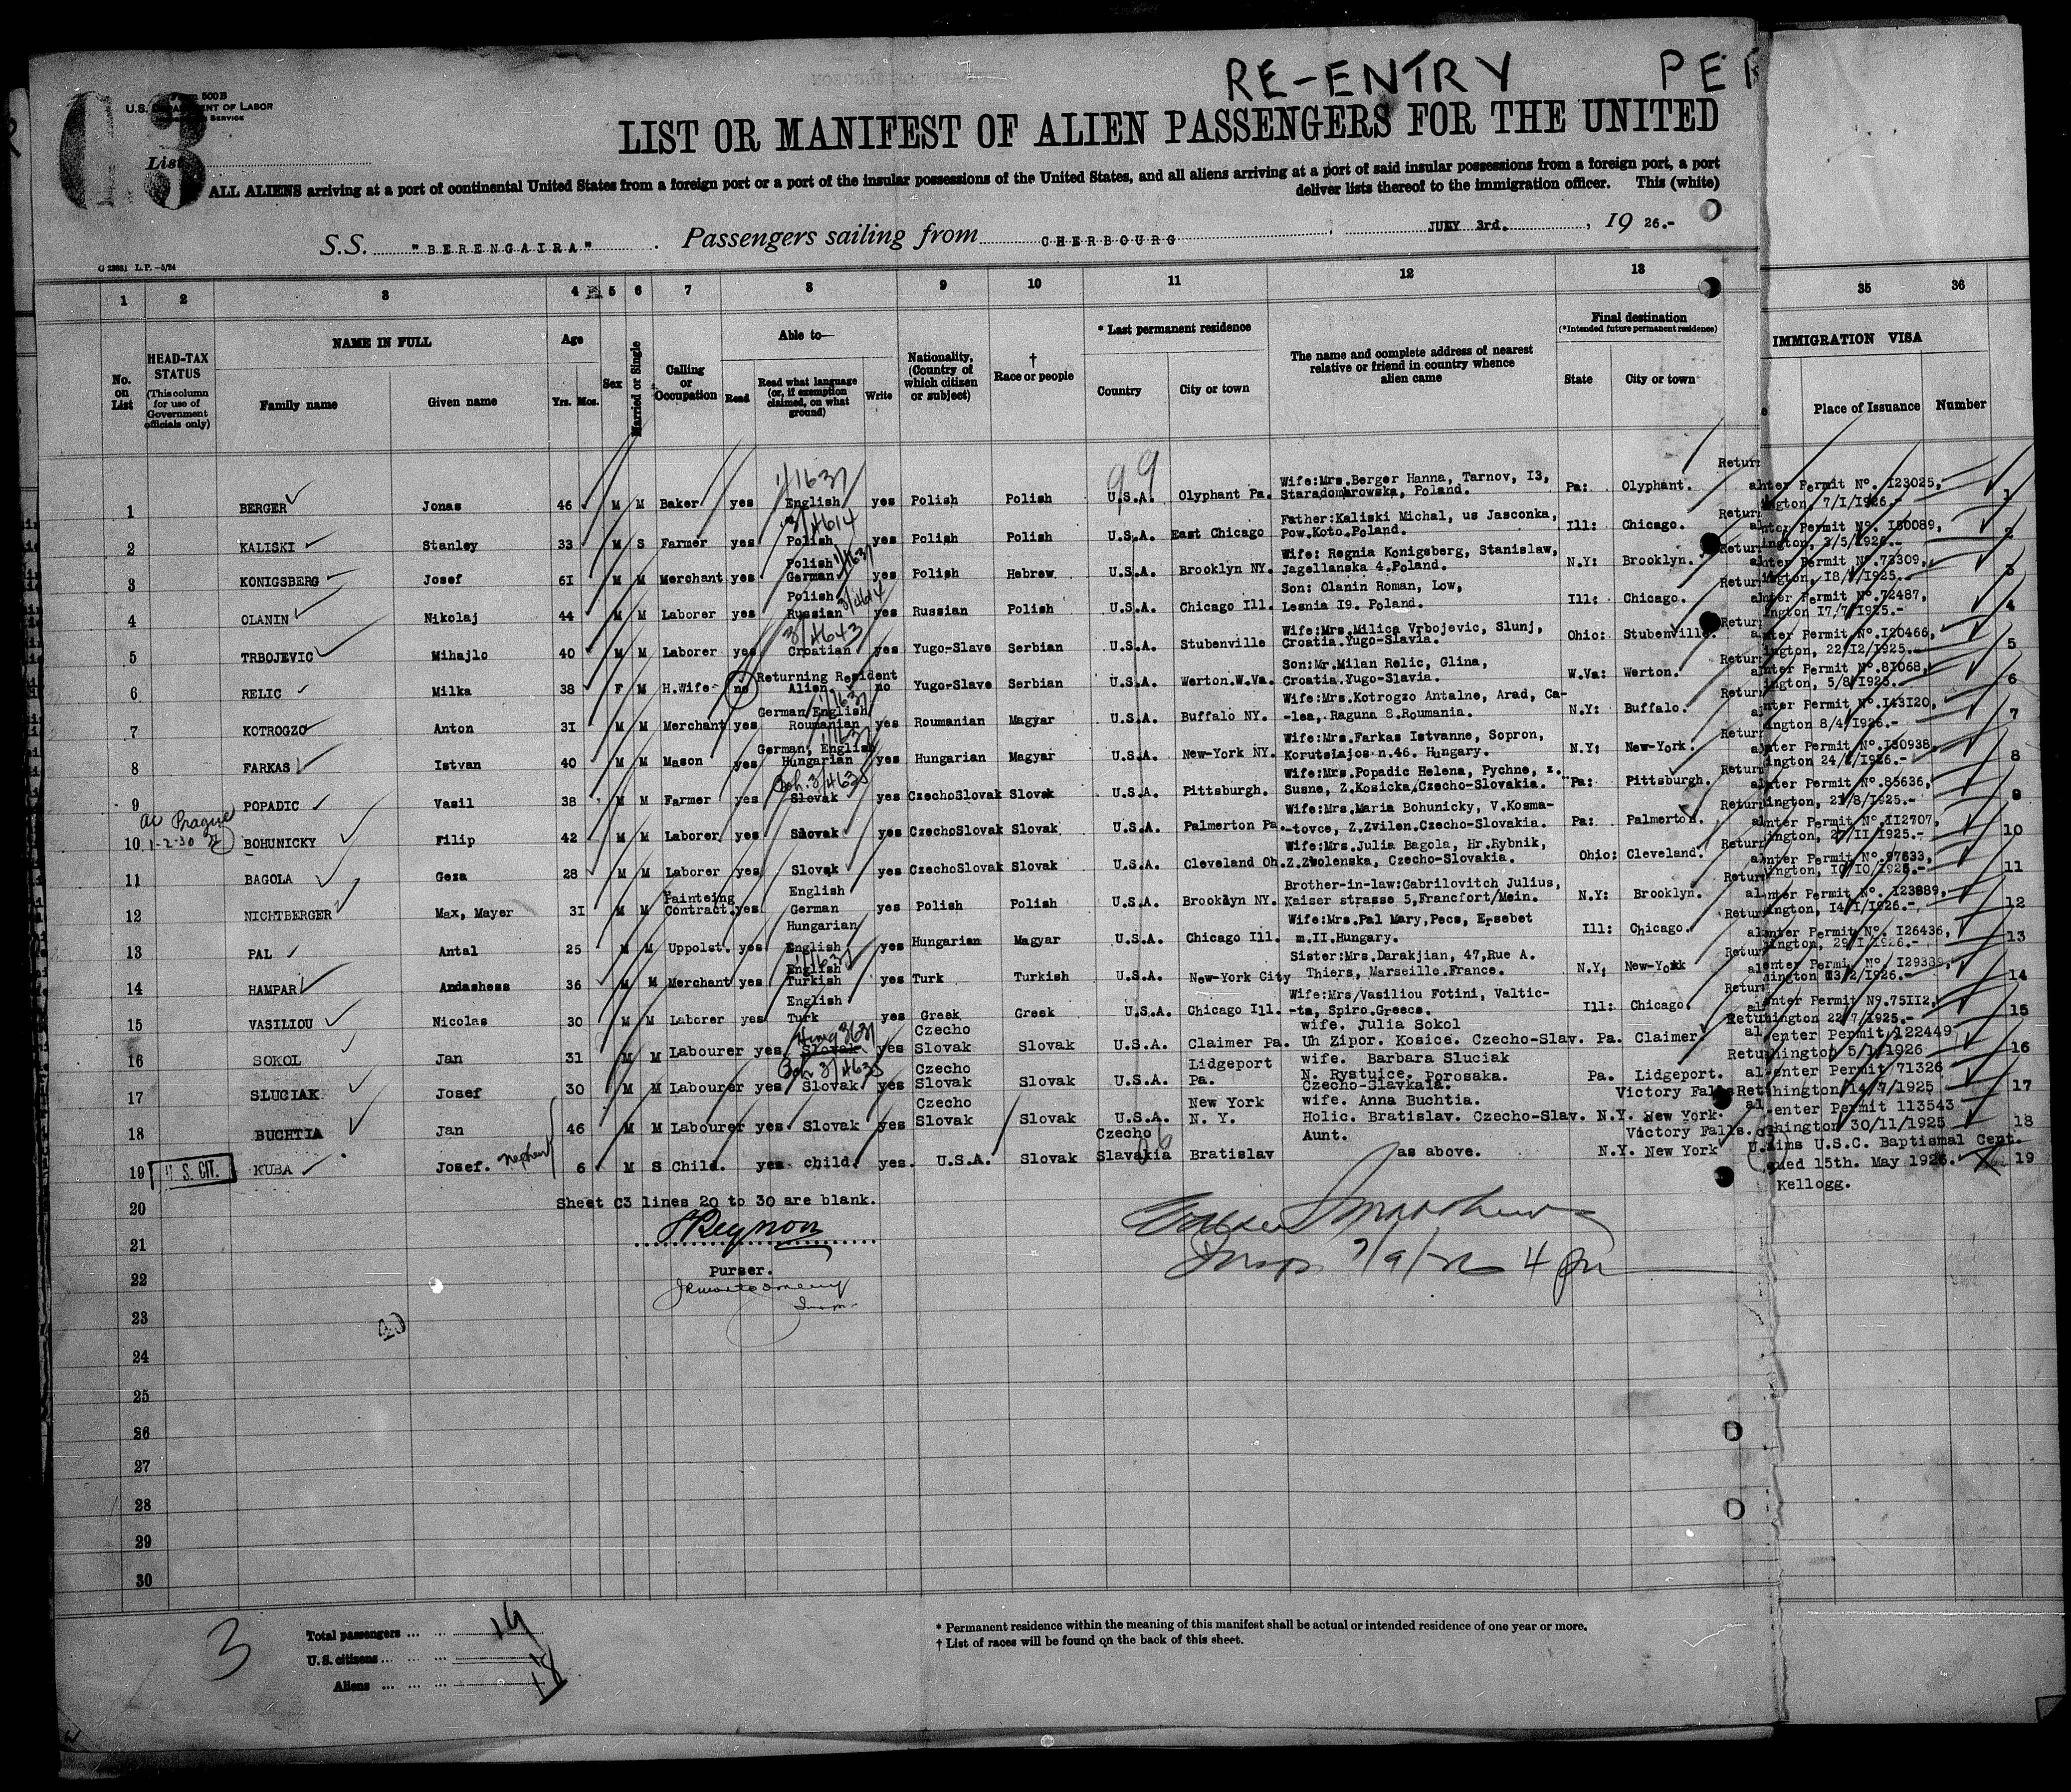 RE-ENTRY PER
Form 500 B
U.S. DEPARTMENT OF LABOR
SERVICE
C3
List
LIST OR MANIFEST OF ALIEN PASSENGERS FOR THE UNITED
ALL ALIENS arriving at a port of continental United States from a foreign port or a port of the insular possessions of the United States, and all aliens arriving at a port of said insular possessions from a foreign port, a port
deliver lists thereof to the immigration officer. This (white)
S.S. "BERENGAIRA" . Passengers sailing from CHERBOURG , JULY 3rd. , 19 26.-
G 23651 L.P.—5/24
1 2 3 4 5 6 7 8 9 10 11 12 13 35 36
No. on List
HEAD-TAX STATUS (This column for use of Government officials only)
NAME IN FULL
Family name Given name
Age
Yrs. Mos.
Sex
Married or Single
Calling or Occupation
Able to—
Read
Read what language (or, if exemption claimed, on what ground)
Write
Nationality, (Country of which citizen or subject)
† Race or people
* Last permanent residence
Country City or town
The name and complete address of nearest relative or friend in country whence alien came
Final destination
(*Intended future permanent residence)
State City or town
IMMIGRATION VISA
Place of Issuance Number
99
1/1637
1 BERGER Jonas 46 M M Baker yes English yes Polish Polish U.S.A. Olyphant Pa. Wife:Mrs.Berger Hanna, Tarnov, I3, Staradomarowska, Poland. Pa: Olyphant. Return al nter Permit Nº. I23025, ngton, 7/I/I926.- 1
3/4614
2 KALISKI Stanley 33 M S Farmer yes Polish yes Polish Polish U.S.A. East Chicago Father:Kaliski Michal, us Jasconka, Pow.Koto.Poland. Ill: Chicago. Return al nter Permit Nº. I50089, ington, 3/5/I926.- 2
1/1637
3 KONIGSBERG Josef 6I M M Merchant yes Polish German yes Polish Hebrew U.S.A. Brooklyn NY. Wife: Regnia Konigsberg, Stanislaw, Jagellanska 4.Poland. N.Y: Brooklyn. Return al nter Permit Nº.73309, 3
3/4614
4 OLANIN Nikolaj 44 M M Laborer yes Polish Russian yes Russian Polish U.S.A. Chicago Ill. Son: Olanin Roman, Low, Lesnia I9. Poland. Ill: Chicago. Return al nter Permit Nº.72487, ington I7/7/I925.- 4
3/4643
5 TRBOJEVIC Mihajlo 40 M M Laborer yes Croatian yes Yugo-Slave Serbian U.S.A. Stubenville Wife:Mrs.Milica Vrbojevic, Slunj, Croatia.Yugo-Slavia. Ohio: Stubenville. Return al nter Permit Nº.I20466, ington, 22/I2/I925.- 5
6 RELIC Milka 38 F M H.Wife no Returning Resident Alien no Yugo-Slave Serbian U.S.A. Werton.W.Va. Son:Mr.Milan Relic, Glina, Croatia.Yugo-Slavia. W.Va: Werton. Return al nter Permit Nº.8I068, ington, 5/8/I925.- 6
1/1637
7 KOTROGZO Anton 3I M M Merchant yes German English Roumanian yes Roumanian Magyar U.S.A. Buffalo NY. Wife:Mrs.Kotrogzo Antalne, Arad, Ca- -lea, Raguna S.Roumania. N.Y: Buffalo. Return al nter Permit Nº.I43I20, ington 8/4/I926.- 7
1/1637
8 FARKAS Istvan 40 M M Mason yes German, English Hungarian yes Hungarian Magyar U.S.A. New-York NY. Wife:Mrs.Farkas Istvanne, Sopron, Korutslajos n.46. Hungary. N.Y: New-York. Return al nter Permit Nº.I50938, 8
Boh. 3/4635
9 POPADIC Vasil 38 M M Farmer yes Slovak yes CzechoSlovak Slovak U.S.A. Pittsburgh. Wife:Mrs.Popadic Helena, Pychne, z. Susne, Z.Kosicka,Czecho-Slovakia. Pa: Pittsburgh. Return al nter Permit Nº.85636, ington, 2I/8/I925.- 9
ac Prague
1-2-30
10 BOHUNICKY Filip 42 M M Laborer yes Slovak yes CzechoSlovak Slovak U.S.A. Palmerton Pa. Wife:Mrs.Maria Bohunicky, V.Kosma- -tovce, Z.Zvilen.Czecho-Slovakia. Pa: Palmerton. Return al nter Permit Nº.II2707, ington, 27/II/I925.- 10
11 BAGOLA Geza 28 M M Laborer yes Slovak yes CzechoSlovak Slovak U.S.A. Cleveland Oh. Wife:Mrs.Julia Bagola, Hr.Rybnik, Z.Zwolenska, Czecho-Slovakia. Ohio: Cleveland. Return al nter Permit Nº.97633, ington, I0/I0/I925.- 11
12 NICHTBERGER Max, Mayer 3I M M Painteing Contract. yes English German yes Polish Polish U.S.A. Brooklyn NY. Brother-in-law:Gabrilovitch Julius, Kaiser strasse 5,Francfort/Mein. N.Y: Brooklyn. Return al nter Permit Nº. I23889, ington, I4/I/I926.- 12
13 PAL Antal 25 M M Uppolst. yes Hungarian English yes Hungarian Magyar U.S.A. Chicago Ill. Wife:Mrs.Pal Mary,Pecs, Ersebet m.II.Hungary. Ill: Chicago. Return al nter Permit Nº. I26436, ington, 29/I/I926.- 13
1/1637
14 HAMPAR Andashess 36 M M Merchant yes English Turkish yes Turk Turkish U.S.A. New-York City Sister:Mrs.Darakjian, 47,Rue A. Thiers, Marseille.France. N.Y: New-York Return al enter Permit Nº I29389, ington /2/I926.- 14
15 VASILIOU Nicolas 30 M M Laborer yes English Turk yes Greek Greek U.S.A. Chicago Ill. Wife:Mrs/Vasiliou Fotini, Valtic- -ta, Spiro.Greece. Ill: Chicago. Return al enter Permit Nº.75II2, hington 22/7/I925.- 15
Hung 3637
16 SOKOL Jan 31 M M Labourer yes Slovak yes Czecho Slovak Slovak U.S.A. Claimer Pa. wife. Julia Sokol Uh Zipor. Kosice. Czecho-Slav. Pa. Claimer. Retu al enter Permit 122449 hington 5/1/1926 16
Boh. 3/4635
17 SLUCIAK Josef 30 M M Labourer yes Slovak yes Czecho Slovak Slovak U.S.A. Lidgeport Pa. wife. Barbara Sluciak N. Rystuice. Porosaka. Czecho-Slavkaia. Pa. Lidgeport. Retu al -enter Permit 71326 hington 14/7/1925 17
18 BUCHTIA Jan 46 M M Labourer yes Slovak yes Czecho Slovak Slovak U.S.A. New York N. Y. wife. Anna Buchtia. Holic. Bratislav. Czecho-Slav. Victory Falls N.Y. New York. Ret al -enter Permit 113543 hington 30/11/1925 18
19 U. S. CIT. KUBA Josef. Nephew 6 M S Child. yes child. yes. U.S.A. Slovak Czecho Slavakia 06 Bratislav Aunt. as above. Victory Falls. N.Y. New York aims U.S.C. Baptismal Cent. ued 15th. May 1926. Kellogg. 19
20 Sheet C3 lines 20 to 30 are blank.
21
22 Purser.
Insp 7/9/26 4 pm
23
24
25
26
27
28
29
30
3
Total passengers ... ... 19
U. S. citizens ... ... ... 1
Aliens ... ... ... 18
* Permanent residence within the meaning of this manifest shall be actual or intended residence of one year or more.
† List of races will be found on the back of this sheet.